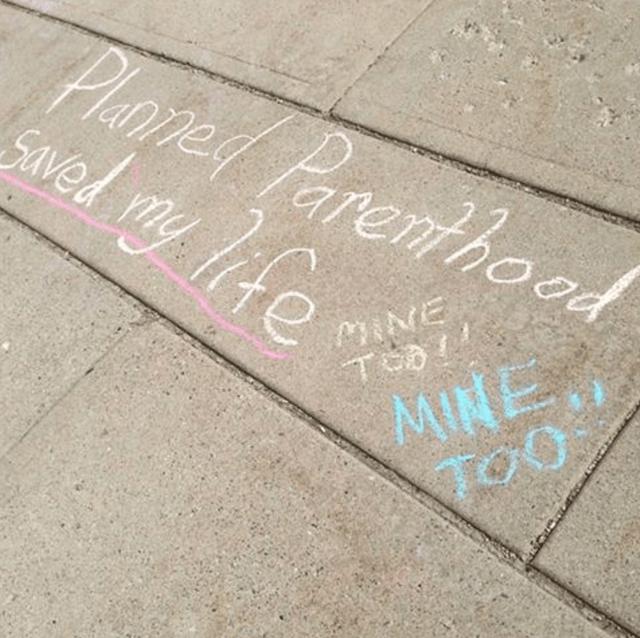 Planned Parenthood
saved my life
MINE
TOO!!
MINE!!
TOO